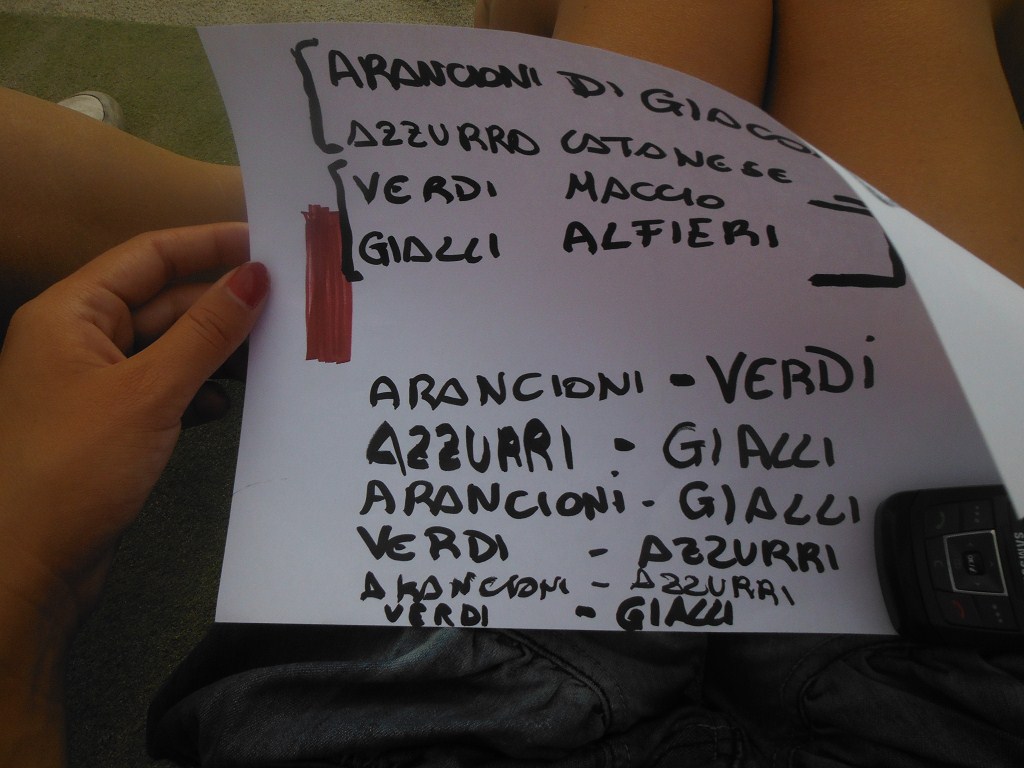 ARANCIONI DI GIACO
AZZURRO CATANESE
VERDI MACCIO
GIALLI ALFIERI
ARANCIONI - VERDi
AZZURRI - GIALLI
ARANCIONi - GIALLI
VERDI - AZZURRI
ARANCIONI - AZZURRI
VERDI - GIALLI